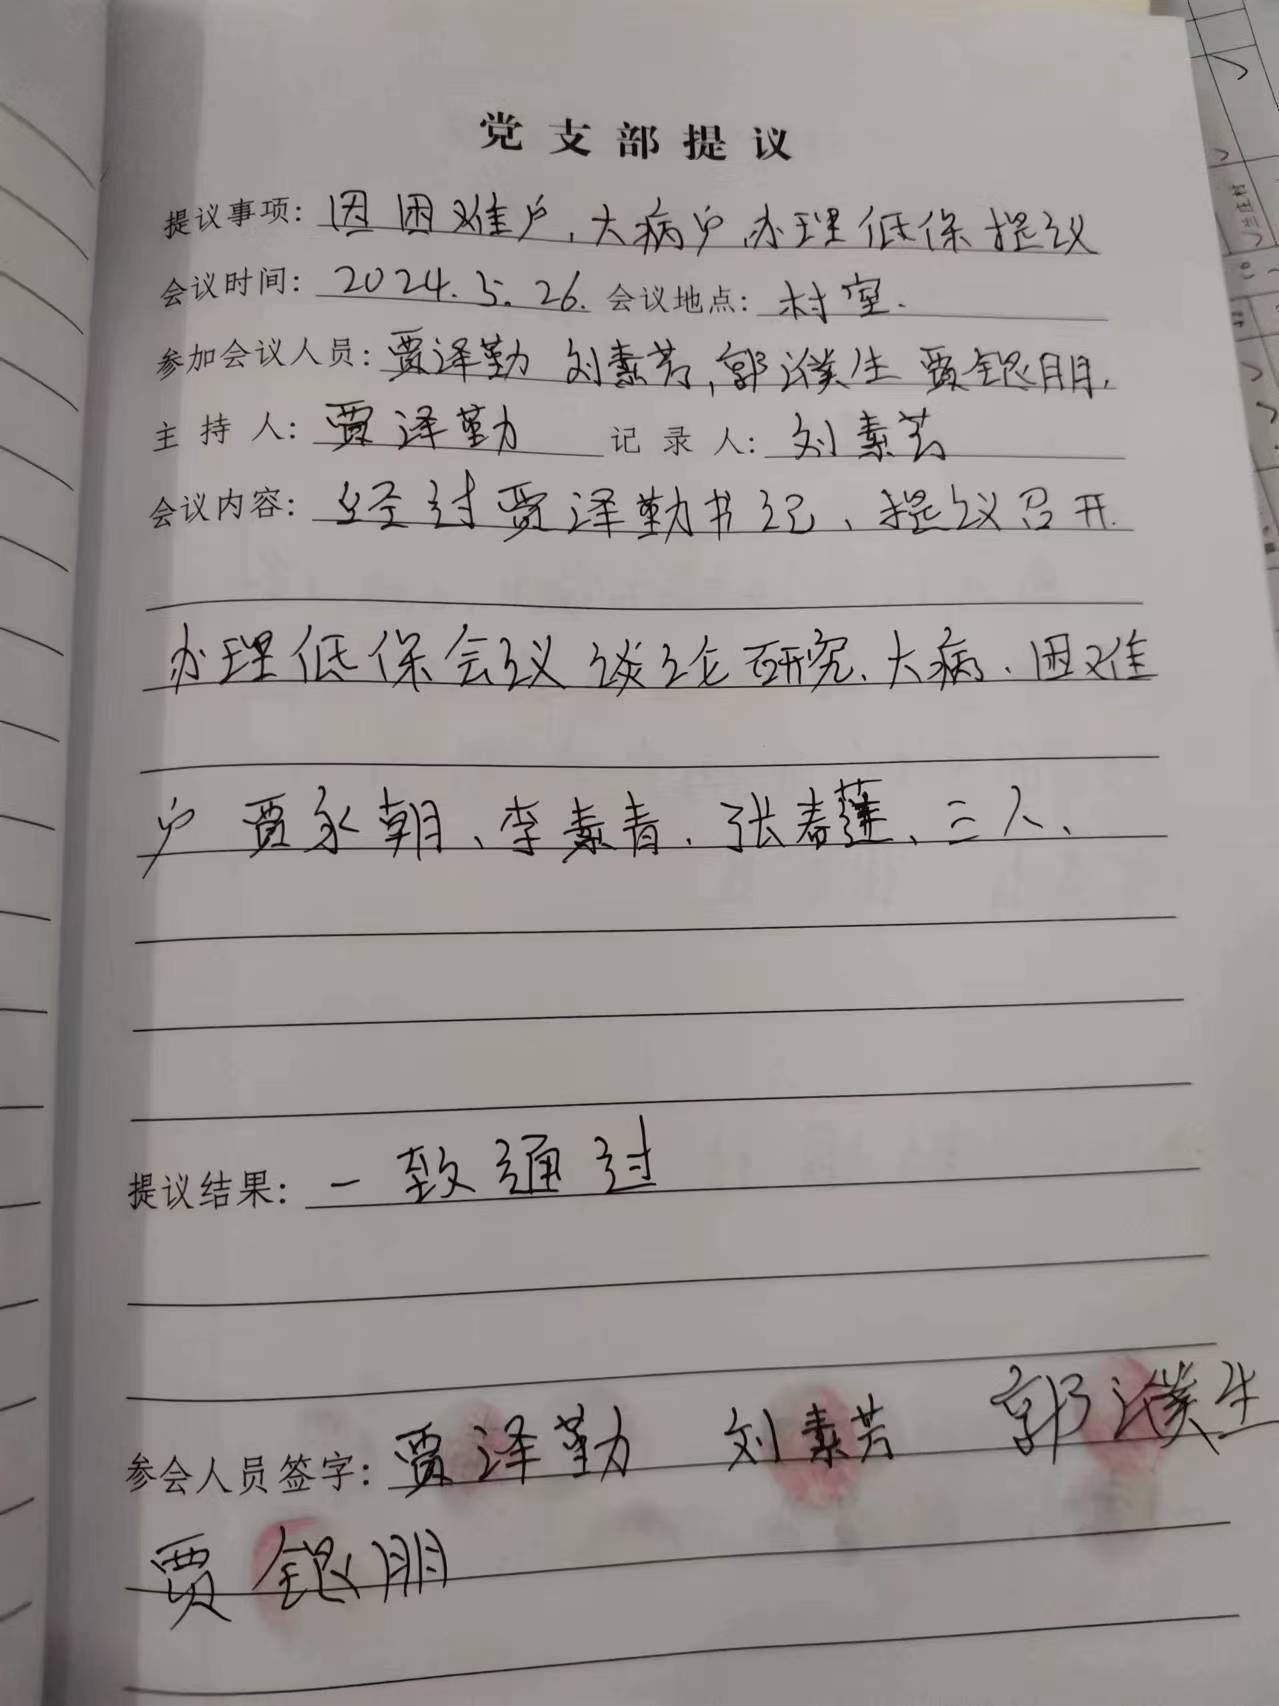 党支部提议
提议事项: 因困难户,大病户,办理低保提议
会议时间: 2024.5.26. 会议地点: 村室.
参加会议人员: 贾泽勤 刘素芳,郭濮生 贾银朋.
主持人: 贾泽勤 记录人: 刘素芳
会议内容: 经过贾泽勤书记、提议召开
办理低保会议谈论研究、大病、困难
户 贾永朝、李素青、张春莲、三人、
提议结果: 一致通过
参会人员签字: 贾泽勤 刘素芳 郭濮生
贾银朋